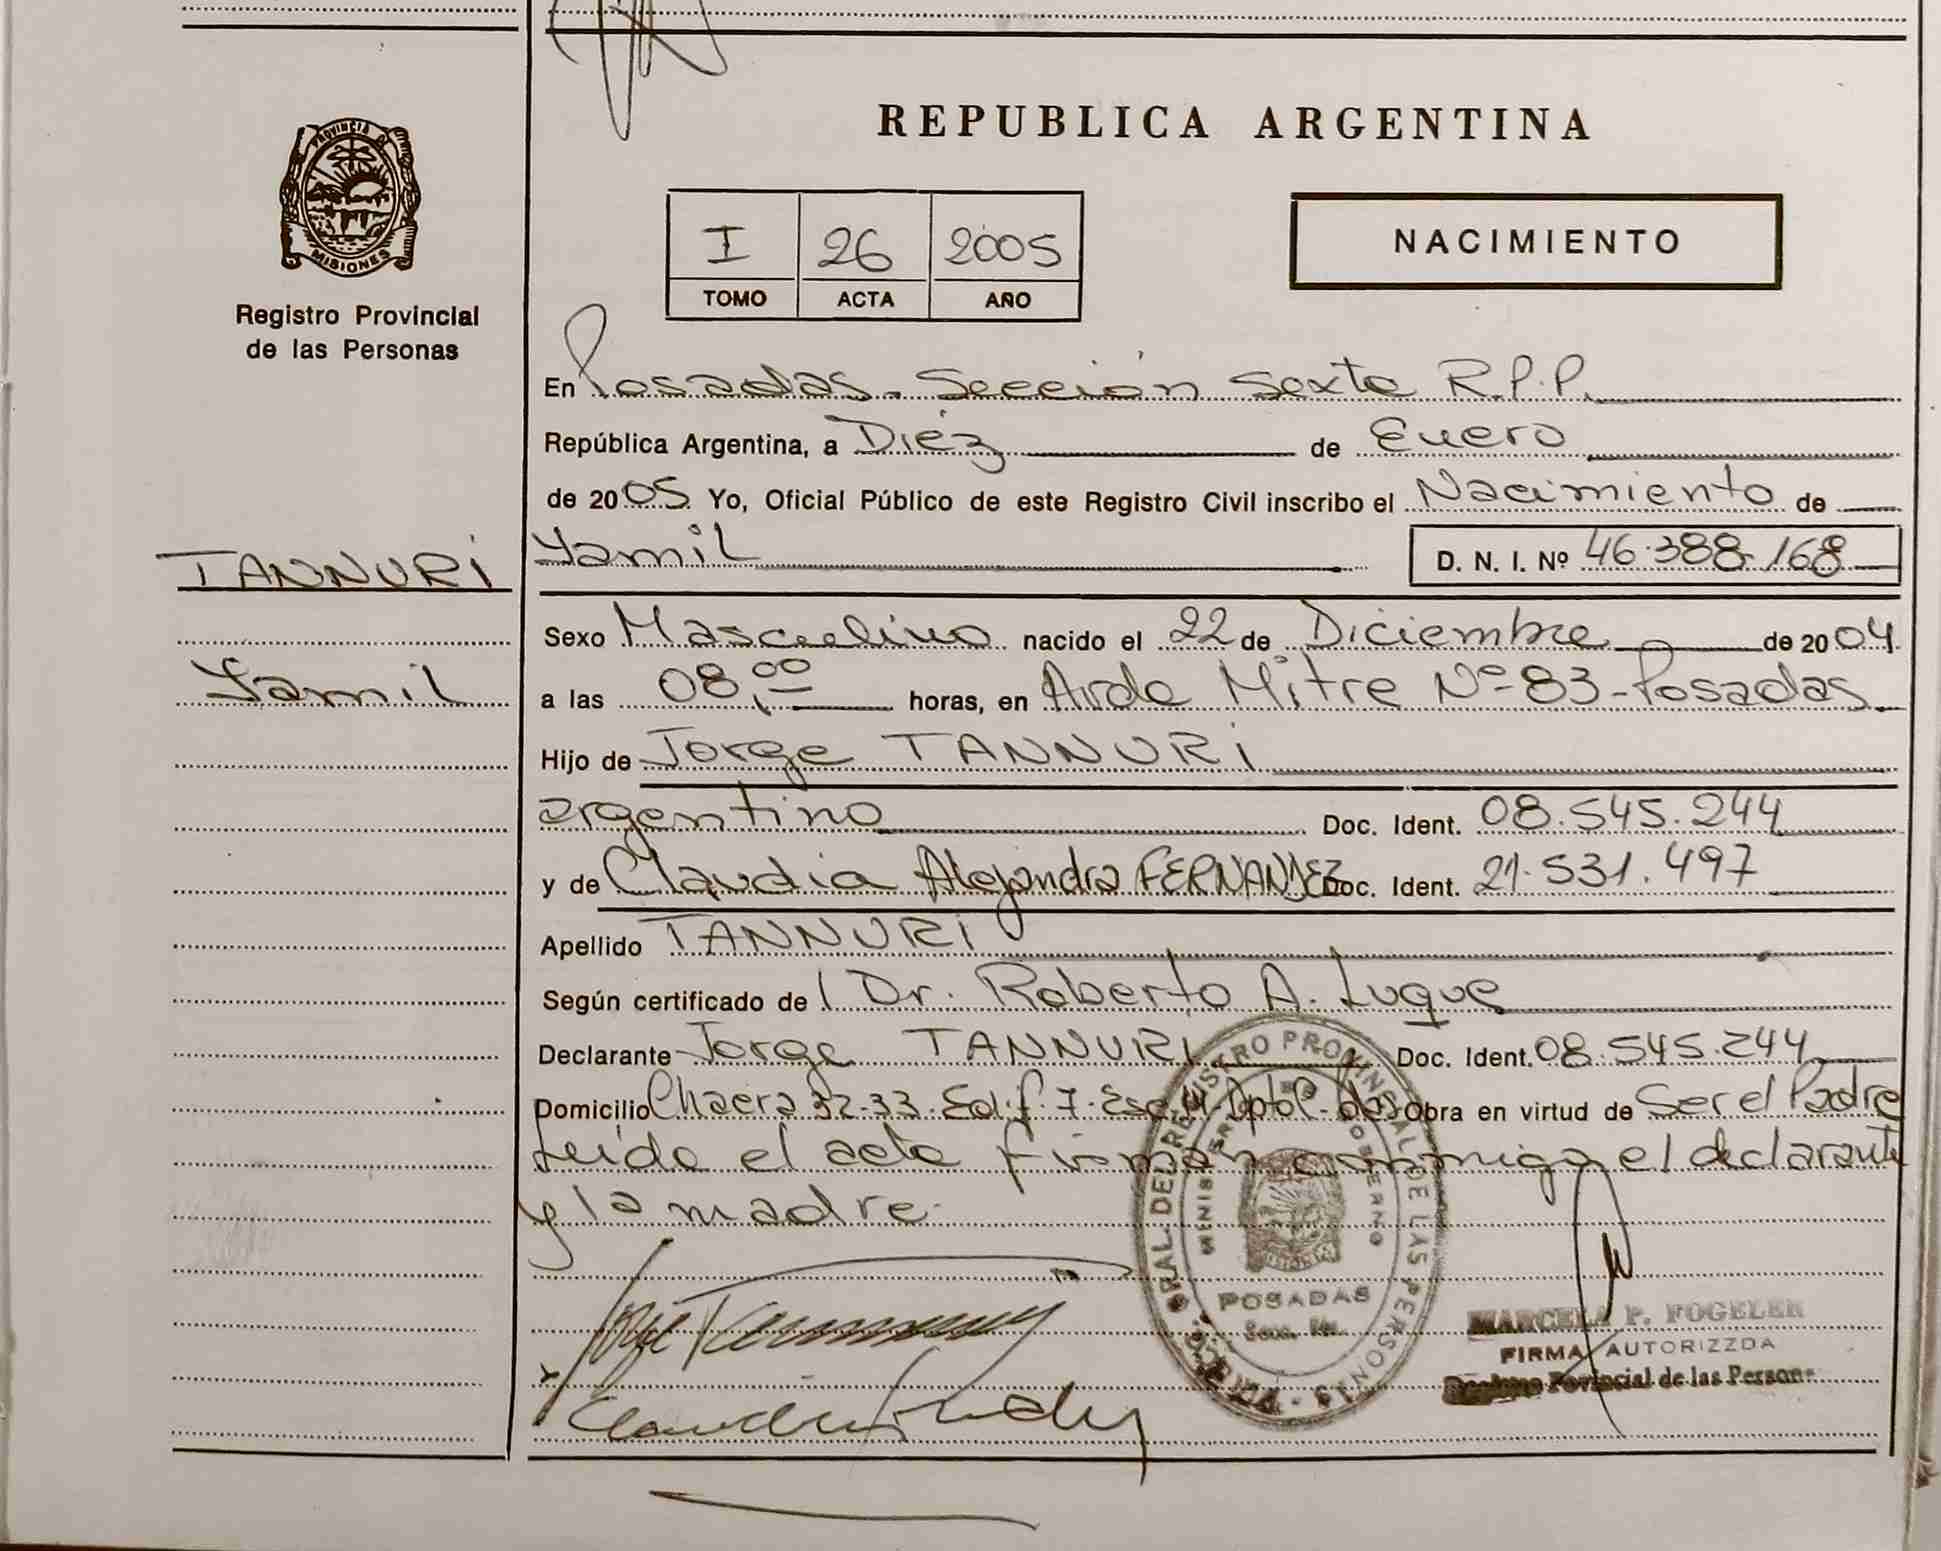 PROVINCIA DE
MISIONES
Registro Provincial
de las Personas
TANNURI
Yamil
REPUBLICA ARGENTINA
I 26 2005
TOMO ACTA AÑO
NACIMIENTO
En Posadas. Sección Sexta R.P.P.
República Argentina, a Diéz de Enero
de 2005 Yo, Oficial Público de este Registro Civil inscribo el Nacimiento de
Yamil D. N. I. Nº 46.388.168
Sexo Masculino nacido el 22 de Diciembre de 2004
a las 08,00 horas, en Avda Mitre Nº 83 - Posadas
Hijo de Jorge TANNURI
argentino Doc. Ident. 08.545.244
y de Claudia Alejandra FERNANDEZ Doc. Ident. 21.531.497
Apellido TANNURI
Según certificado de Dr. Roberto A. Luque
Declarante Jorge TANNURI Doc. Ident. 08.545.244
Domicilio Chacra 32-33. Edif. 7. Esc. Dpto Obra en virtud de Ser el Padre
Leída el acta firman conmigo el declarante
y la madre.
POSADAS
MARCELA P. FOGELER
FIRMA AUTORIZZDA
Provincial de las Persona